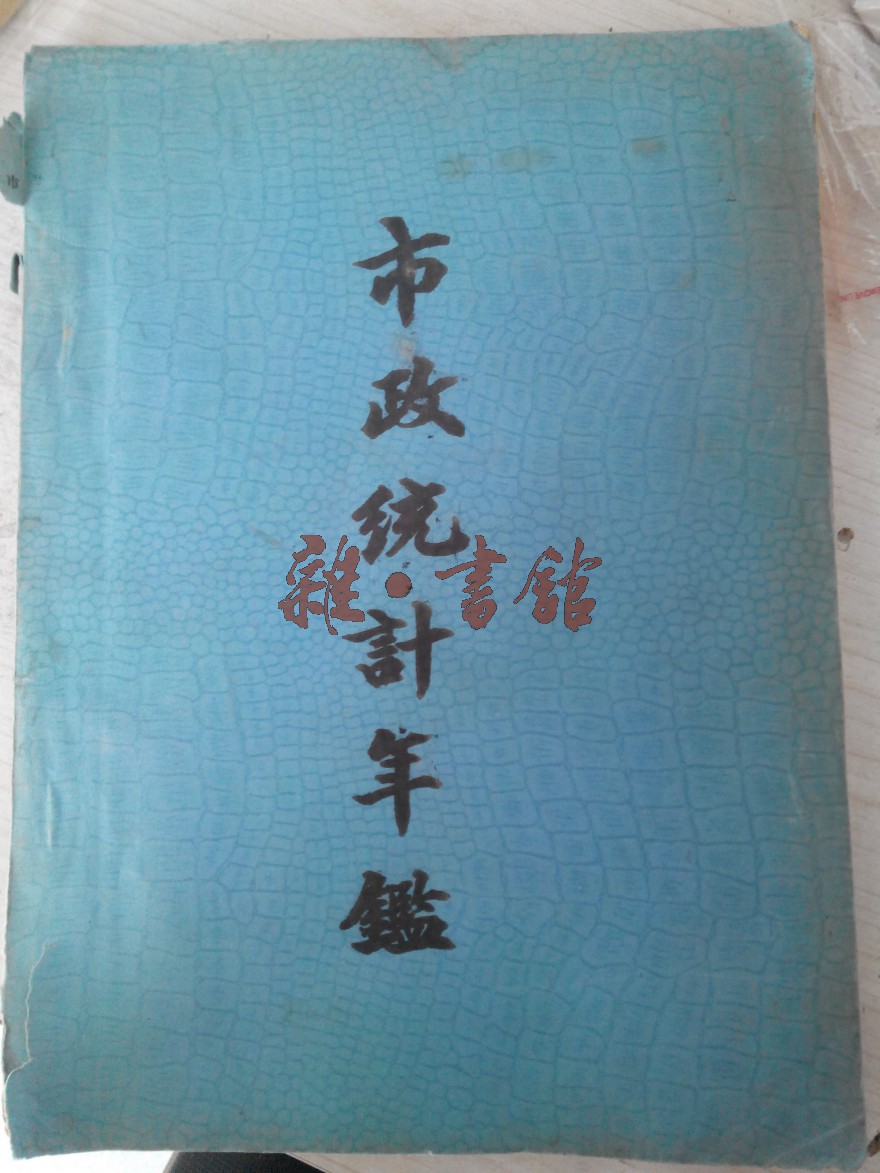 市政统計年鑑
雜·書館